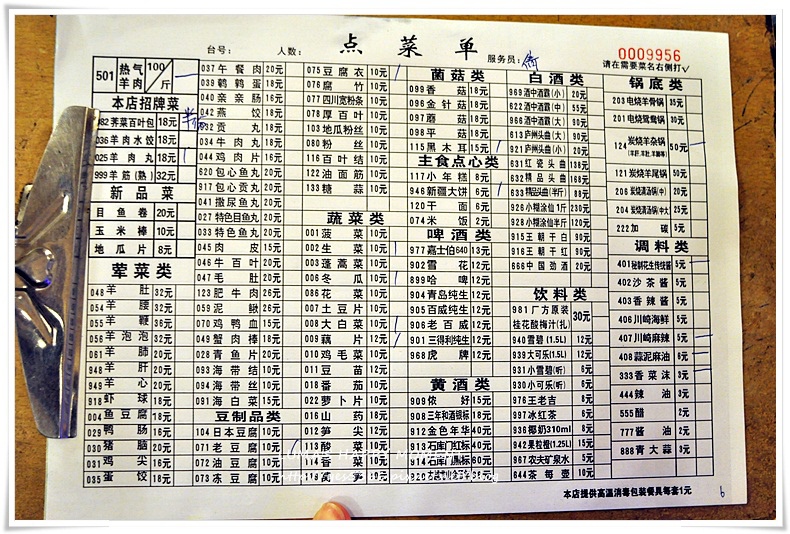 点菜单
台号：
人数：
服务员：
0009956
请在需要菜名右侧打√
501 热气羊肉 100/斤
本店招牌菜
082 荠菜百叶包 18元
036 羊肉水饺 18元
025 羊肉丸 18元
999 羊筋(熟) 32元
新品菜
目鱼卷 20元
玉米棒 10元
地瓜片 8元
荤菜类
048 羊肚 32元
054 羊腰 32元
055 羊鞭 36元
056 羊泡泡 32元
061 羊肺
048 羊肝
049 羊心
918 虾球 18元
004 鱼豆腐 18元
029 鸭肠 16元
030 猪脑
031 鸡尖 16元
035 蛋饺 18元
037 午餐肉 20元
039 鹌鹑蛋 18元
040 亲亲肠 16元
042 燕饺 18元
032 贡丸 18元
034 牛肉丸 18元
044 鸡肉片 16元
620 包心鱼丸 20元
917 包心贡丸 20元
041 撒尿鱼丸 20元
027 特色目鱼丸 20元
033 特色鱼丸 20元
045 肉皮 15元
046 牛百叶 20元
047 毛肚 20元
123 肥牛肉 36元
059 泥鳅 26元
070 鸡鸭血 15元
049 蟹肉棒 18元
028 青鱼片 20元
093 海带结 10元
094 海带丝 10元
091 海白菜 15元
豆制品类
104 日本豆腐 10元
071 老豆腐 10元
072 油豆腐 10元
073 冻豆腐 10元
075 豆腐衣 10元
076 腐竹 10元
077 四川宽粉条 10元
078 厚百叶 10元
103 地瓜粉丝 10元
080 粉丝 10元
116 百叶结 10元
122 油面筋 10元
133 糖蒜 10元
蔬菜类
001 菠菜 10元
002 生菜 10元
003 蓬蒿菜 10元
006 冬瓜 10元
086 花菜 10元
007 土豆片 10元
008 大白菜 10元
009 藕片 12元
010 鸡毛菜 10元
011 豆苗 12元
018 番茄 10元
022 萝卜片 10元
016 山药 18元
012 笋尖 12元
113 酸菜 10元
114 香菜 10元
菌菇类
099 香菇 18元
096 金针菇 18元
097 蘑菇 18元
098 平菇 18元
115 黑木耳 15元
主食点心类
117 小年糕 8元
946 新疆大饼 6元
120 干面 6元
074 米饭 2元
啤酒类
977 嘉士伯640 13元
902 雪花 10元
899 哈啤 12元
904 青岛纯生 12元
905 百威纯生 12元
906 老百威 12元
901 三得利纯生 12元
968 虎牌 12元
黄酒类
909 侬好 15元
908 三年和酒银标 18元
912 金色年华 40元
913 石库门红标 40元
914 石库门黑标 60元
白酒类
969 酒中酒霸(小) 20元
622 酒中酒霸(中) 55元
966 酒中酒霸(大) 90元
613 泸州头曲(大) 90元
921 泸州头曲(小) 20元
631 红瓷头曲 138元
632 精品头曲 168元
633 精品头曲(半斤) 88元
926 小糊涂仙1斤 230元
928 小糊涂仙半斤 120元
915 王朝干白 90元
916 王朝干红 90元
666 中国劲酒 20元
饮料类
981 厂方原装桂花酸梅汁(扎) 30元
940 雪碧(1.5L) 12元
939 大可乐(1.5L) 12元
931 小雪碧(听) 6元
930 小可乐(听) 6元
976 王老吉 8元
997 冰红茶 6元
936 椰奶310ml 8元
942 果粒橙(1.25L) 15元
967 农夫矿泉水 5元
644 茶每壶 10元
锅底类
203 电烧羊骨锅 35元
201 电烧鸳鸯锅 30元
124 炭烧羊杂锅 50元
121 炭烧羊尾锅 50元
206 炭烧清汤锅(中) 20元
204 炭烧清汤锅(中大) 25元
222 加碳 5元
调料类
401 秘制花生传统酱 5元
402 沙茶酱 5元
403 香辣酱 5元
406 川崎海鲜 5元
407 川崎麻辣 5元
408 蒜泥麻油 6元
333 香菜沫 3元
444 辣油 3元
555 醋 2元
777 酱油 2元
888 青大蒜 3元
本店提供高温消毒包装餐具每套1元
6